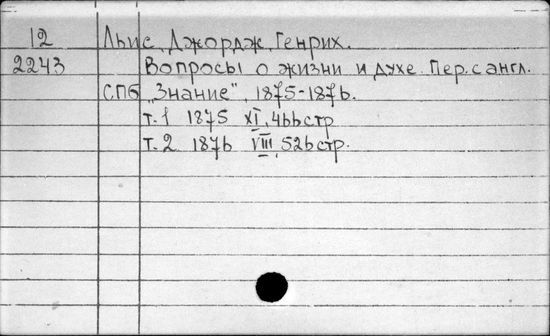 12 Льис, Джордж, Генрих.
2243 Вопросы о жизни и духе. Пер. с англ.
СПб „Знание", 1875-1876.
т.1 1875 XI, 466 стр
т.2 1876 VIII, 526 стр.